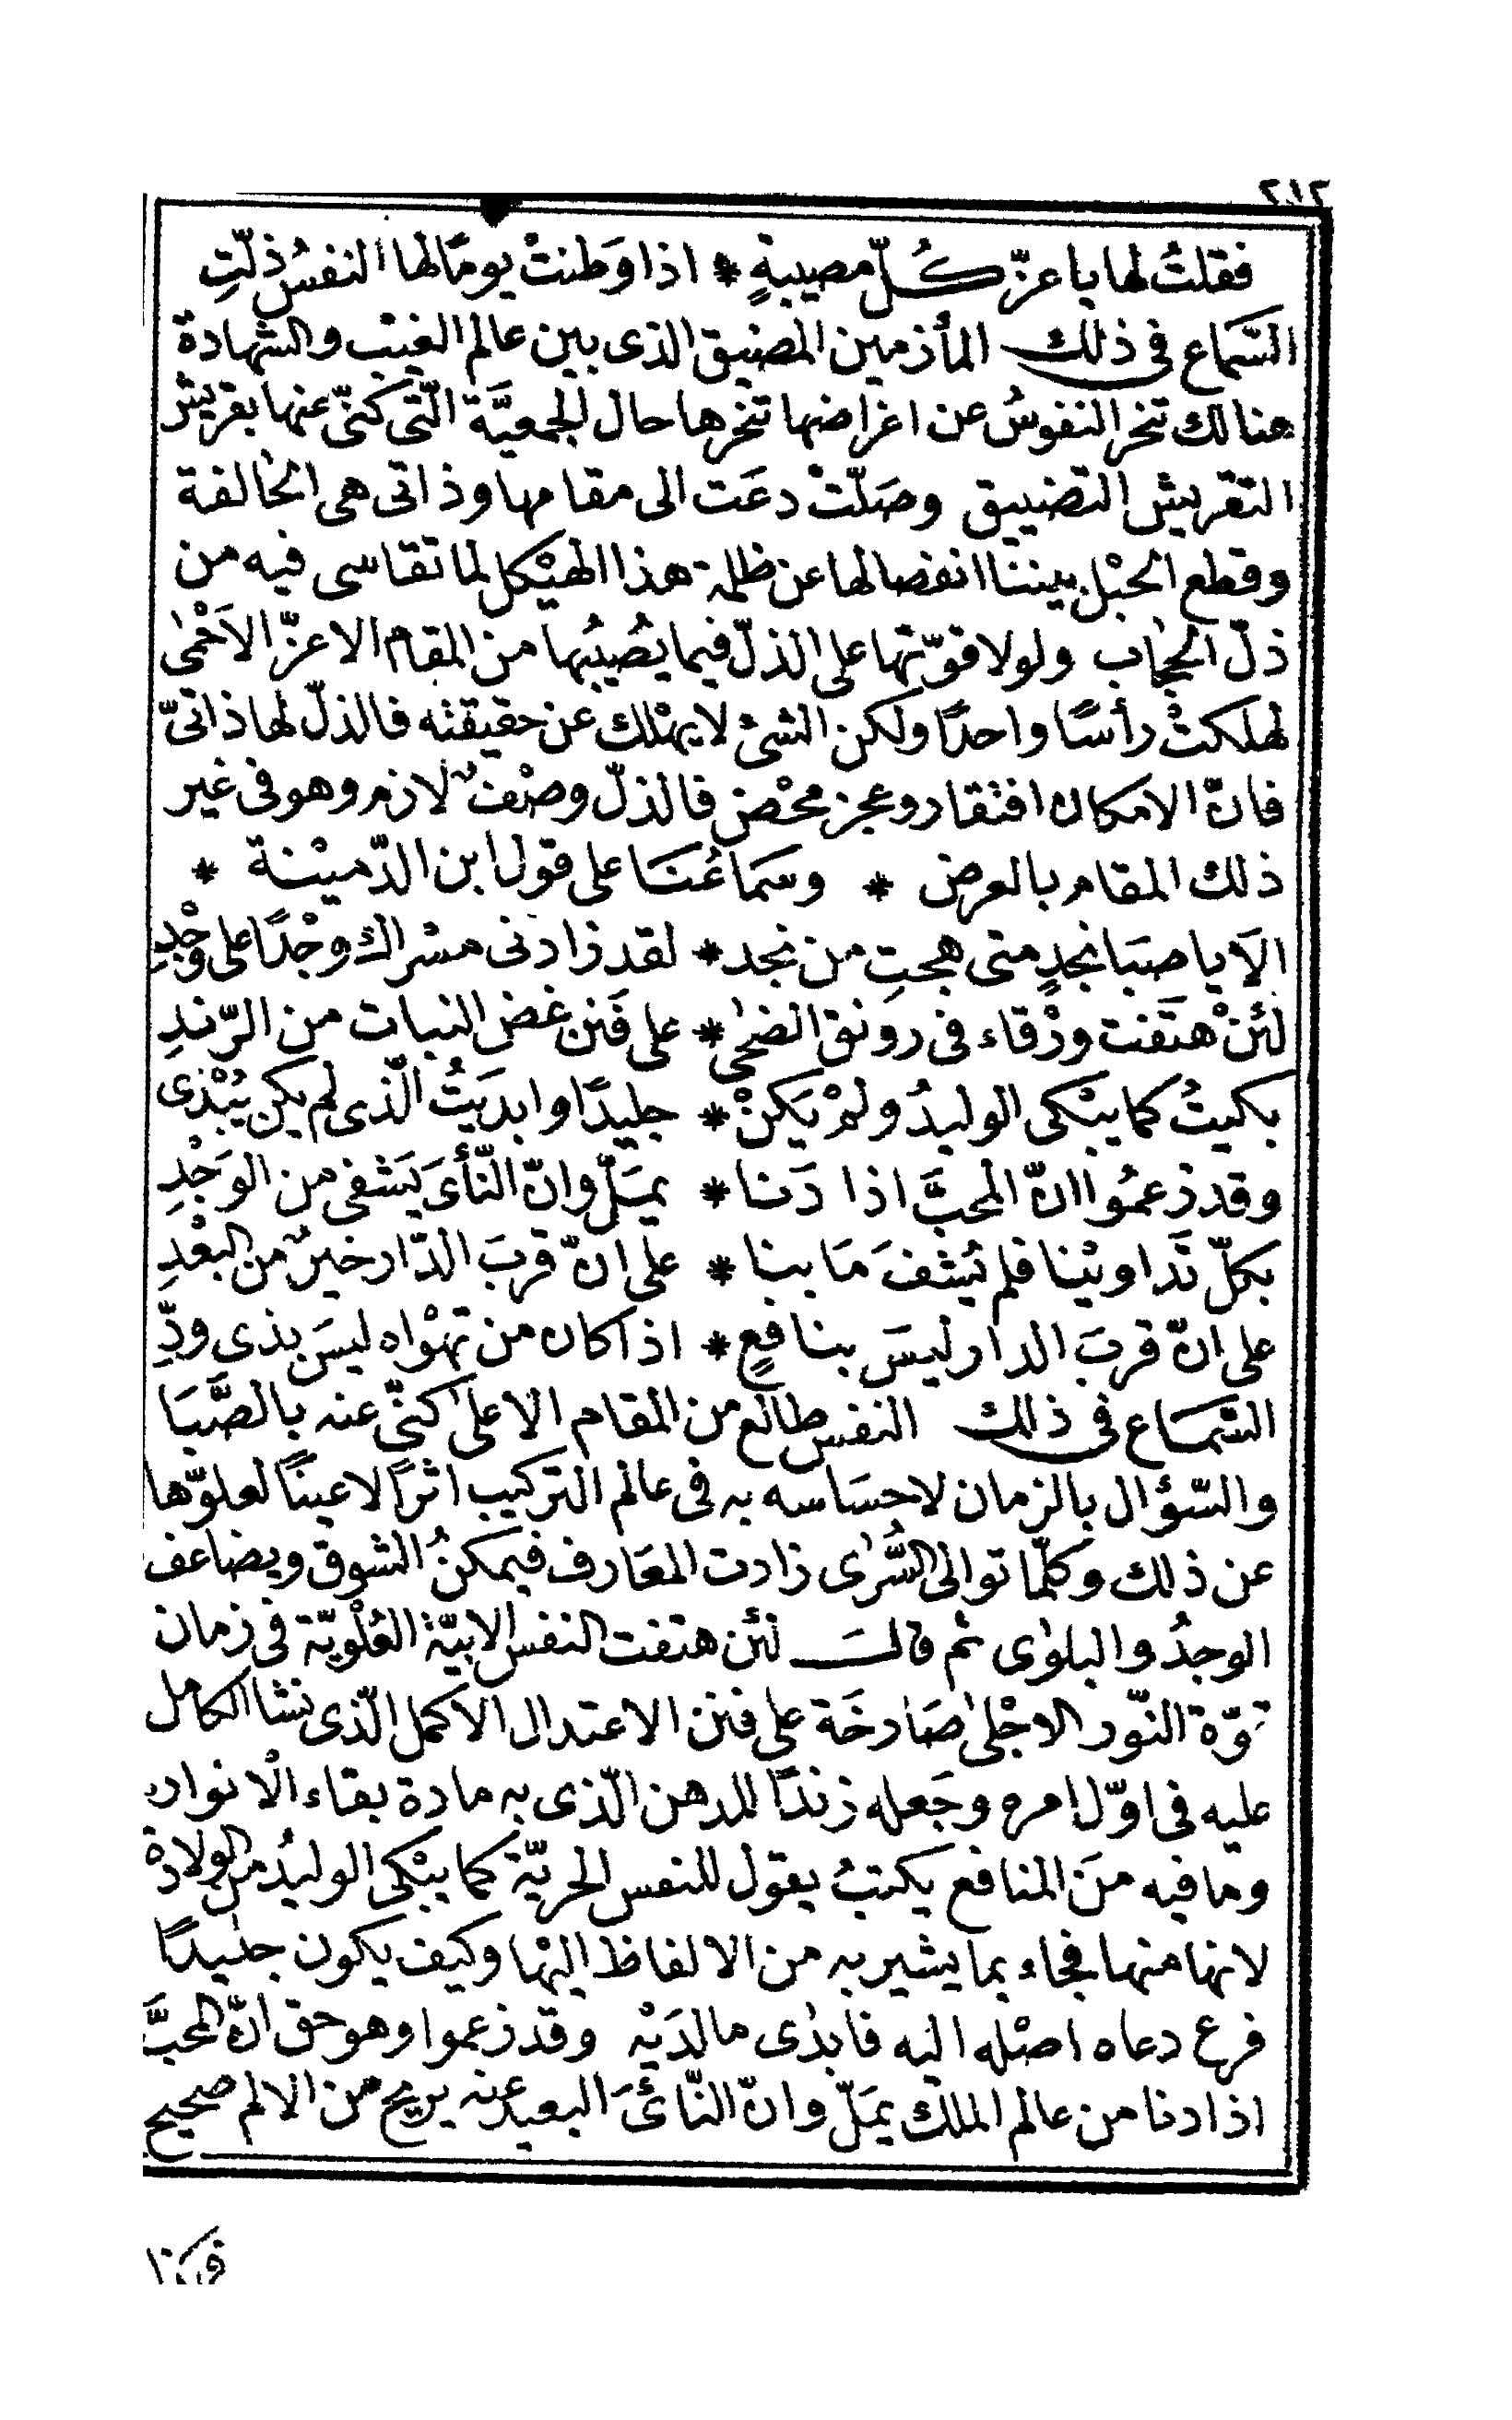 ٢١٢
فقلتُ لها يا عزّ كُلّ مصيبةٍ * اذا وَطنتْ يومًا لها النفسُ ذلّتِ
السّماع في ذلك المأزمين المضيق الذى بين عالم الغيْب والشهادة
هنالك تنحر النفوسُ عن اغراضها تنحرها حال الجمعيَّة الّتى كنّى عنها بقريش
التقريش التضييق وصَلّتْ دعَت الى مقامها وذاتى هى الخالفة
وقطع الحبْل بيننا انفصالها عن ظلمة هذا الهيْكل لما تقاسى فيه من
ذلّ الحجاب ولولا قوّتها على الذلّ فيما يصُيبُها من المقام الاعزّ الاَحْمٰى
لهلكتْ رأسًا واحدًا ولكن الشئ لا يهْلك عن حقيقته فالذلّ لها ذاتىّ
فانّ الامكان افتقار وعجز محْض فالذلّ وصْفٌ لازم وهو فى غير
ذلك المقام بالعرض * وسَماعُنَا على قول ابن الدّميْنة *
الاَ يا صَبَا نجدٍ متى هجتِ من نجد * لقد زادنى مسْراك وجْدًا على وَجْدِ
لئنْ هتَفت ورْقاء فى رونق الضحٰى * على فَننٍ غض النبات من الرّندِ
بكيتُ كما يبْكى الوليدُ ولمْ يَكنْ * جليدًا وابديَتُ الّذى لم يكن يُبْدى
وقد زعمُوا انّ المحبَّ اذا دَنا * يمَلّ وانّ النّأىَ يَشفى من الوَجْدِ
بكلّ تَداويْنا فلم يُشفَ مَا بنا * على انّ قربَ الدّار خيرٌ من البعْدِ
على انّ قربَ الدار ليسَ بنافعٍ * اذا كان من تهْواه ليسَ بذى ودِّ
السّمَاع فى ذلك النفس طالع من المقام الاعلىٰ كنّى عنه بالصَّبَا
والسّؤال بالزمان لاحسَاسه به فى عالم التركيب اثرًا لا عينًا لعلوّها
عن ذلك وكلّما توالى السُّرٰى زادت المعَارف فيمكنُ الشوق ويضاعف
الوجدُ والبلوٰى ثم قالـــتَ لئن هتفت النفس الابيّة العُلْويّة فى زمان
قوّة النّور الاجْلىٰ صَارخَة على فنن الاعتدال الاكمل الّذى نشا الكامل
عليه فى اوّل امره وجَعله زندًا للدهن الّذى به مادة بقاء الْانوار
وما فيه منَ المنافع يكتبُ يقول للنفس الحريّة كما يبْكى الوليدُ من الولادة
لانها منها فجاء بما يشير به من الالفاظ اليْها وكيف يكون جليدًا
فرع دعاه اصْله اليه فابدٰى ما لديْه وقد زعموا وهو حق انّ المحبَّ
اذا دنا من عالم الملك يمَلّ وانّ النّائىَ البعيد عنه يريح من الالم صحيح